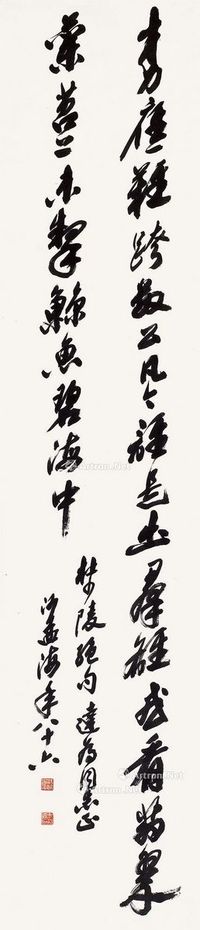 才力應難跨數公凡今誰是出羣雄或看翡翠
蘭苕上未掣鯨魚碧海中
杜陵絕句達為同志正
沙孟海年八十六
Artron.Net